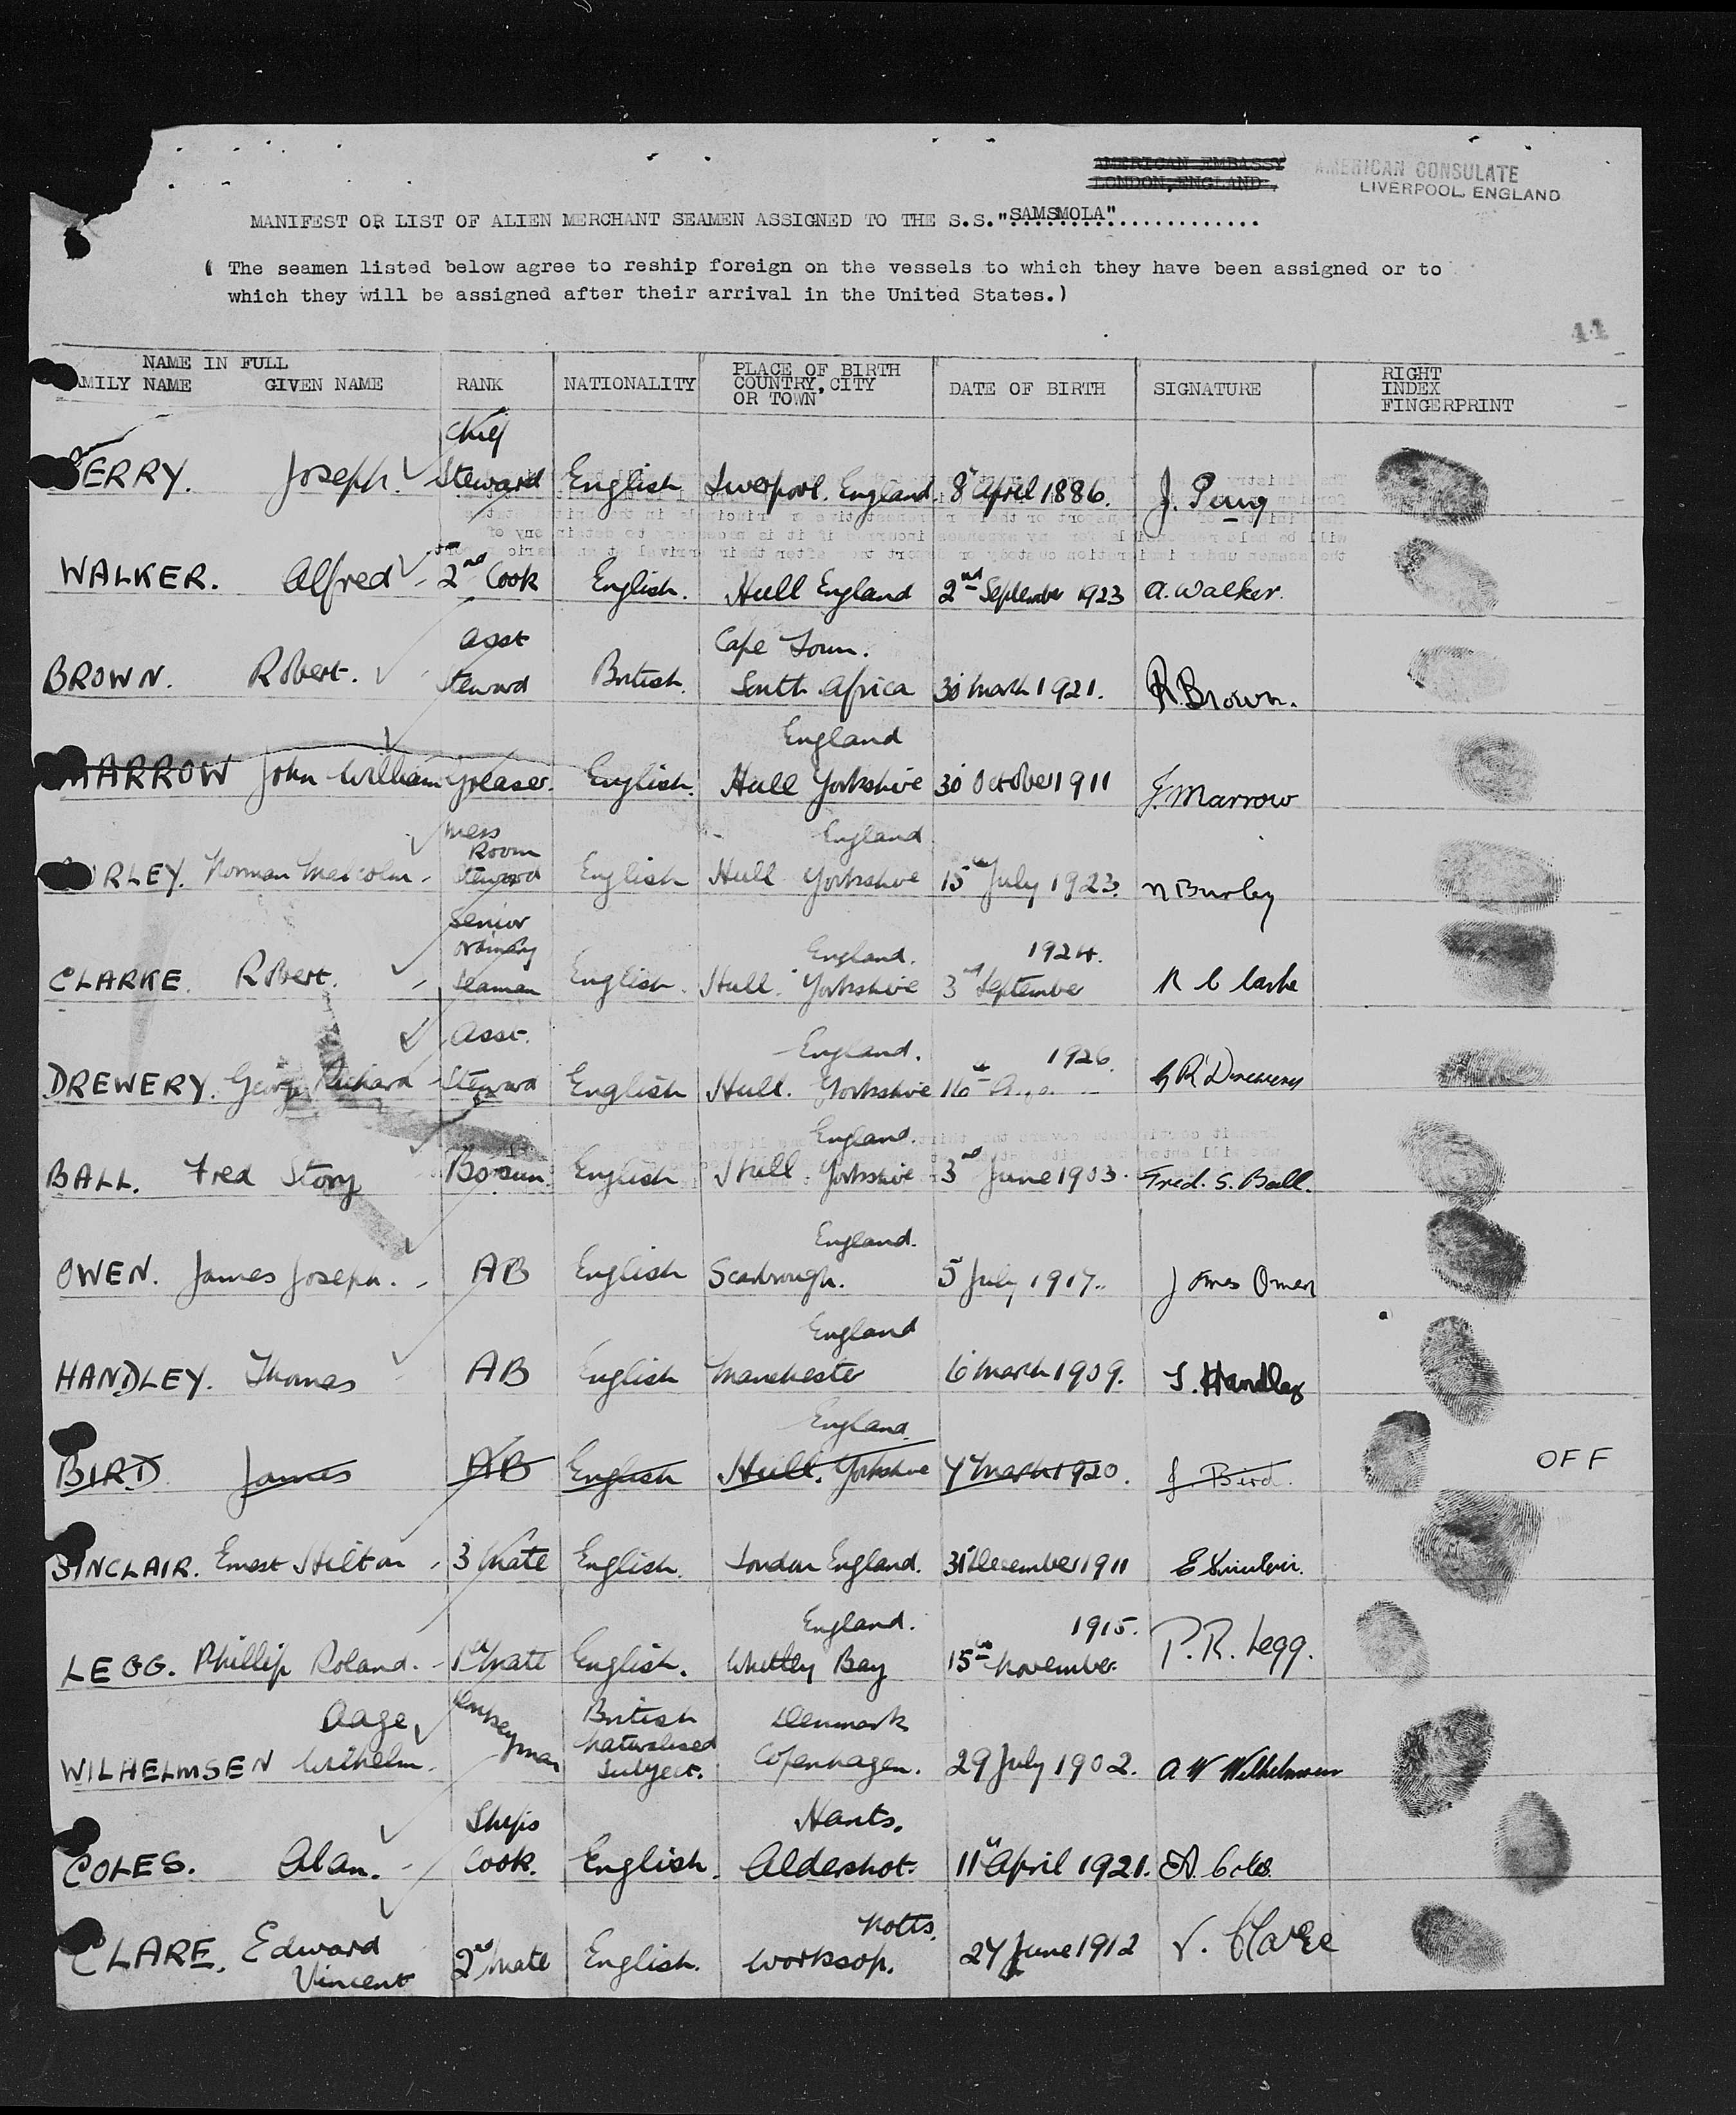 AMERICAN EMBASSY
LONDON, ENGLAND.
AMERICAN CONSULATE
LIVERPOOL, ENGLAND
MANIFEST OR LIST OF ALIEN MERCHANT SEAMEN ASSIGNED TO THE S.S. "SAMSMOLA"
( The seamen listed below agree to reship foreign on the vessels to which they have been assigned or to
which they will be assigned after their arrival in the United States.)
44
NAME IN FULL
FAMILY NAME GIVEN NAME RANK NATIONALITY PLACE OF BIRTH COUNTRY, CITY OR TOWN DATE OF BIRTH SIGNATURE RIGHT INDEX FINGERPRINT
Chief
ERRY. Joseph. Steward English Liverpool. England. 8 April 1886. J.
WALKER. Alfred 2nd Cook English. Hull England 2nd September 1923 A. Walker.
Asst Cape Town.
BROWN. Robert. Steward British. South Africa 30 March 1921. R. Brown.
England
MARROW John William Greaser. English. Hull Yorkshire 30 October 1911 J. Marrow
Mess
Room England
URLEY. Norman Malcolm Steward English Hull Yorkshire 15th July 1923. N Burley
Senior
Ordinary England. 1924.
CLARKE. Robert. Seaman English. Hull. Yorkshire 3rd September R Clarke
Asst. England. 1926.
DREWERY. George Richard Steward English Hull. Yorkshire 16th G R Drewery
England.
BALL. Fred Story Bosun. English Hull. Yorkshire 3rd June 1903. Fred. S. Ball.
England.
OWEN. James Joseph. AB English Scarborough. 5 July 1917. James Owen
England
HANDLEY. Thomas AB English Manchester 6 March 1909. T. Handley
England.
BIRD James AB English Hull. Yorkshire 7 March 1920. J. Bird. OFF
SINCLAIR. Ernest Hilton 3 Mate English. London England. 31 December 1911 E Sinclair.
England. 1915.
LEGG. Phillip Roland. 1st Mate English. Whitley Bay 15th November. P. R. Legg.
Aage Donkeyman British Denmark
WILHELMSEN Wilhelm. Naturalised Subject. Copenhagen. 29 July 1902. A W Wilhelmsen
Ships Hants.
COLES. Alan. Cook. English. Aldershot. 11th April 1921. A. Coles.
Notts.
CLARE. Edward Vincent 2nd Mate English. Worksop. 27 June 1912 V. Clare